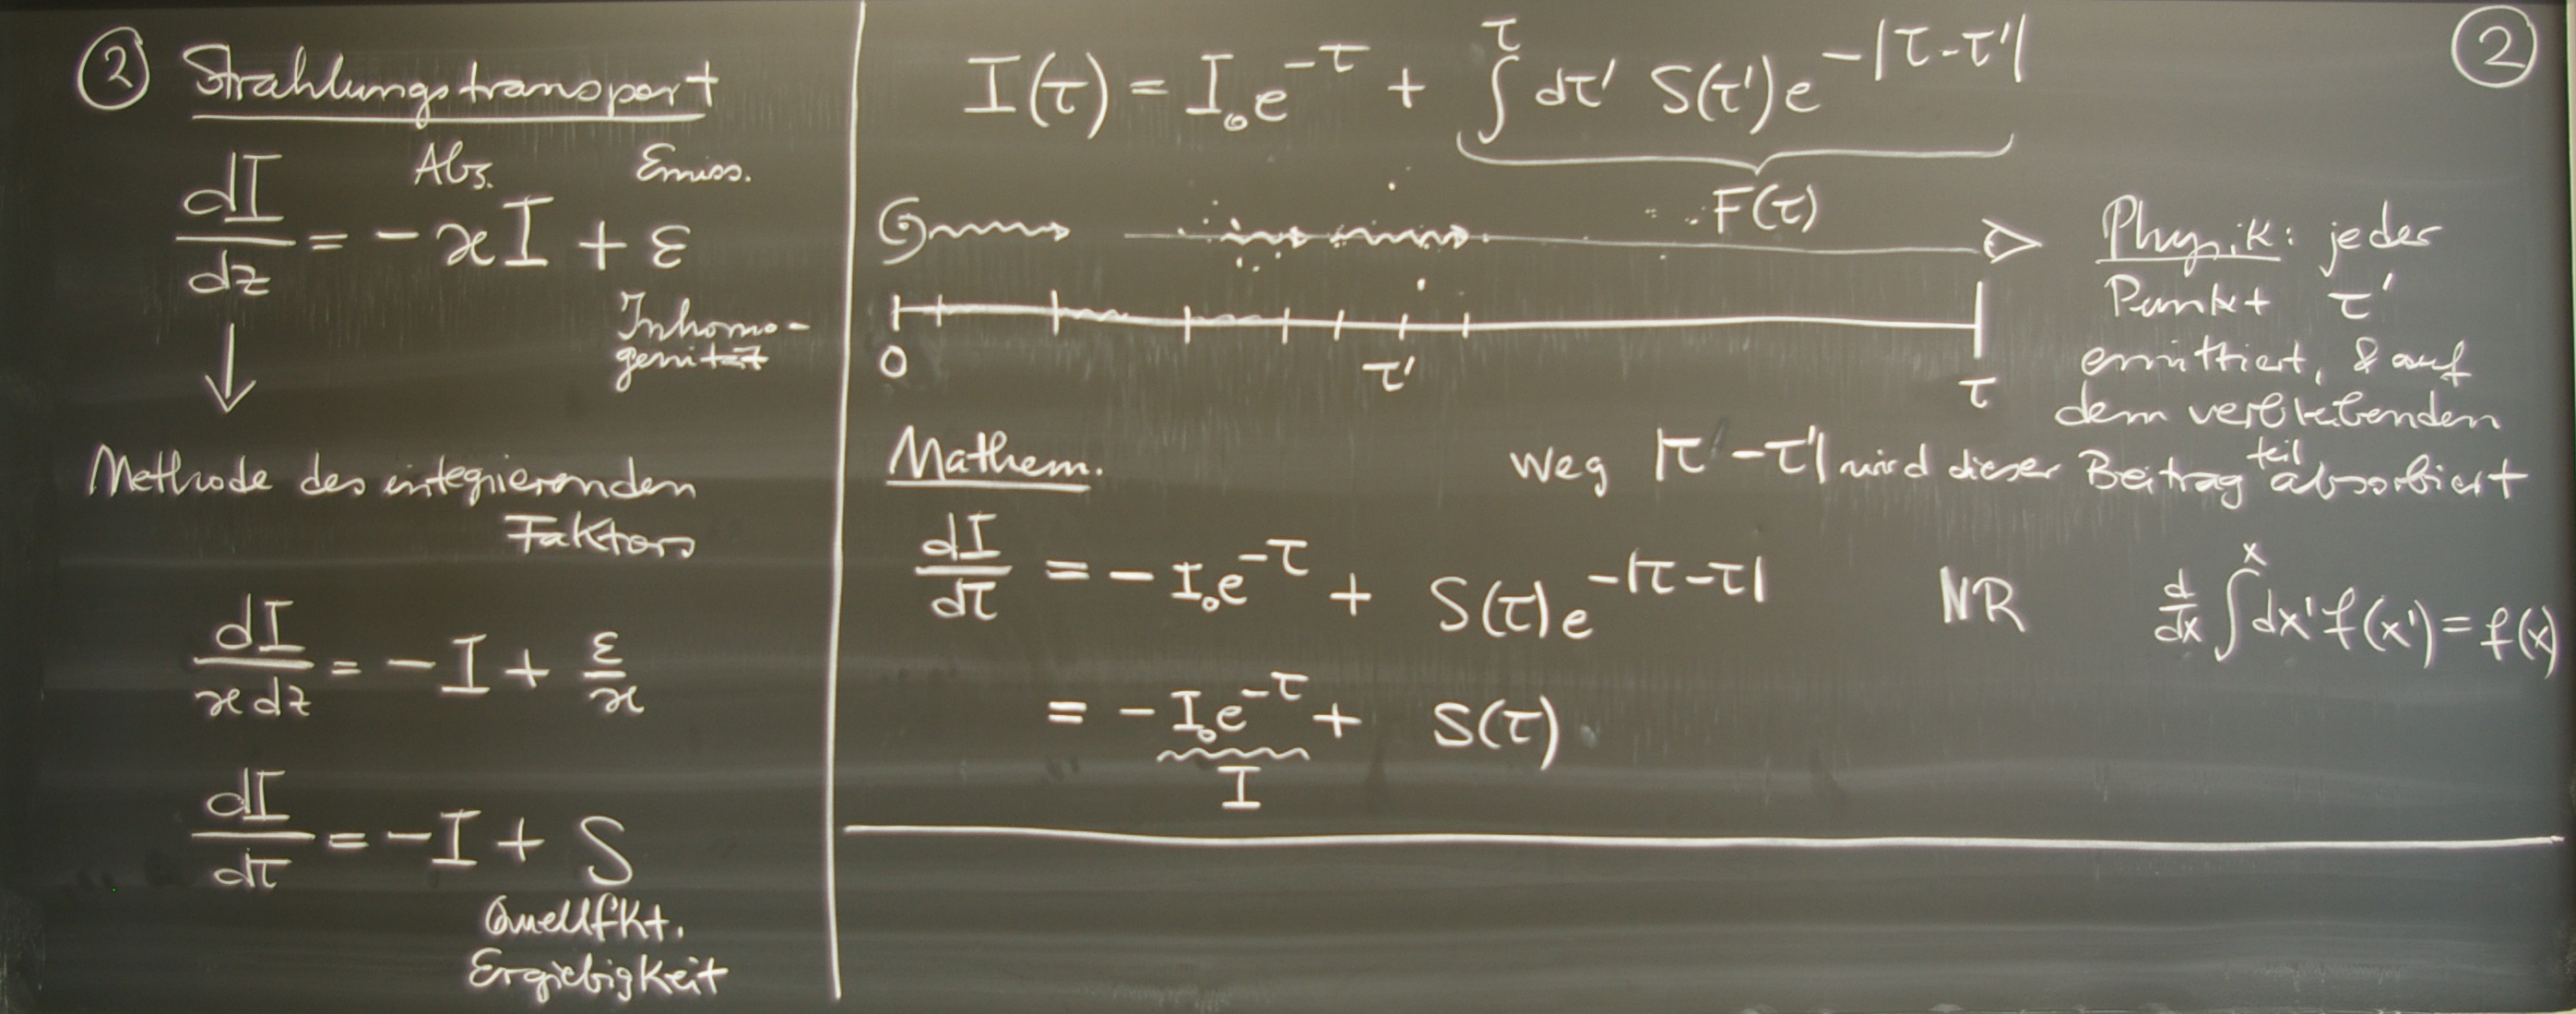 ② Strahlungstransport
Abs. Emiss.
dI/dz = -ϰI + ε
Inhomo-
genität
↓
Methode des integrierenden
Faktors
dI/ϰdz = -I + ε/ϰ
dI/dτ = -I + S
Quellfkt.
Ergiebigkeit
I(τ) = I₀e^{-τ} + ∫^τ dτ' S(τ')e^{-|τ-τ'|}
②
F(τ)
0 τ' τ
Physik: jeder
Punkt τ'
emittiert, & auf
dem verbleibenden
Weg |τ'-τ| wird dieser Beitrag teil absorbiert
Mathem.
dI/dτ = -I₀e^{-τ} + S(τ)e^{-|τ-τ|}
NR d/dx ∫^x dx' f(x') = f(x)
= -I₀e^{-τ} + S(τ)
I